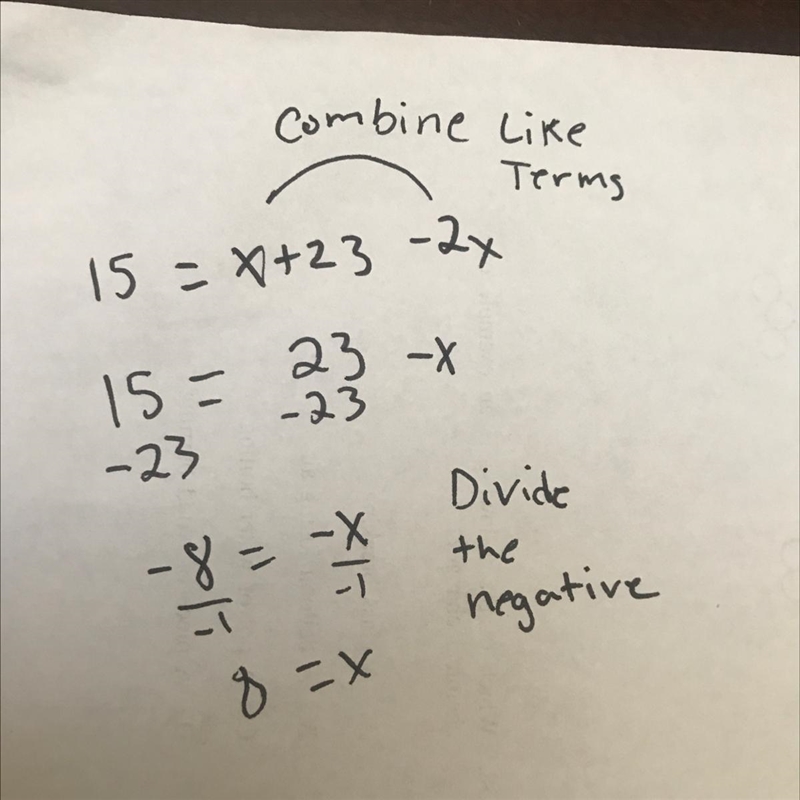 Combine Like
Terms
15 = x+23 -2x
15 = 23 -x
-23 -23
-8 = -x
-1 -1
Divide
the
negative
8 = x